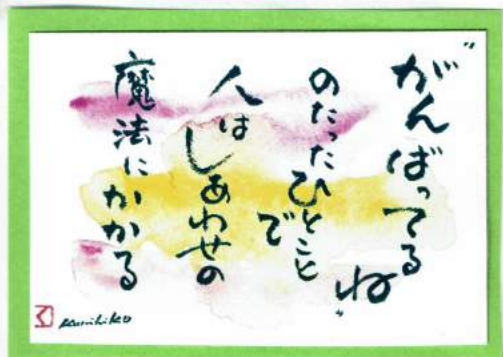 "がんばってるね"
のたったひとことで
人はしあわせの
魔法にかかる
Kunihiko